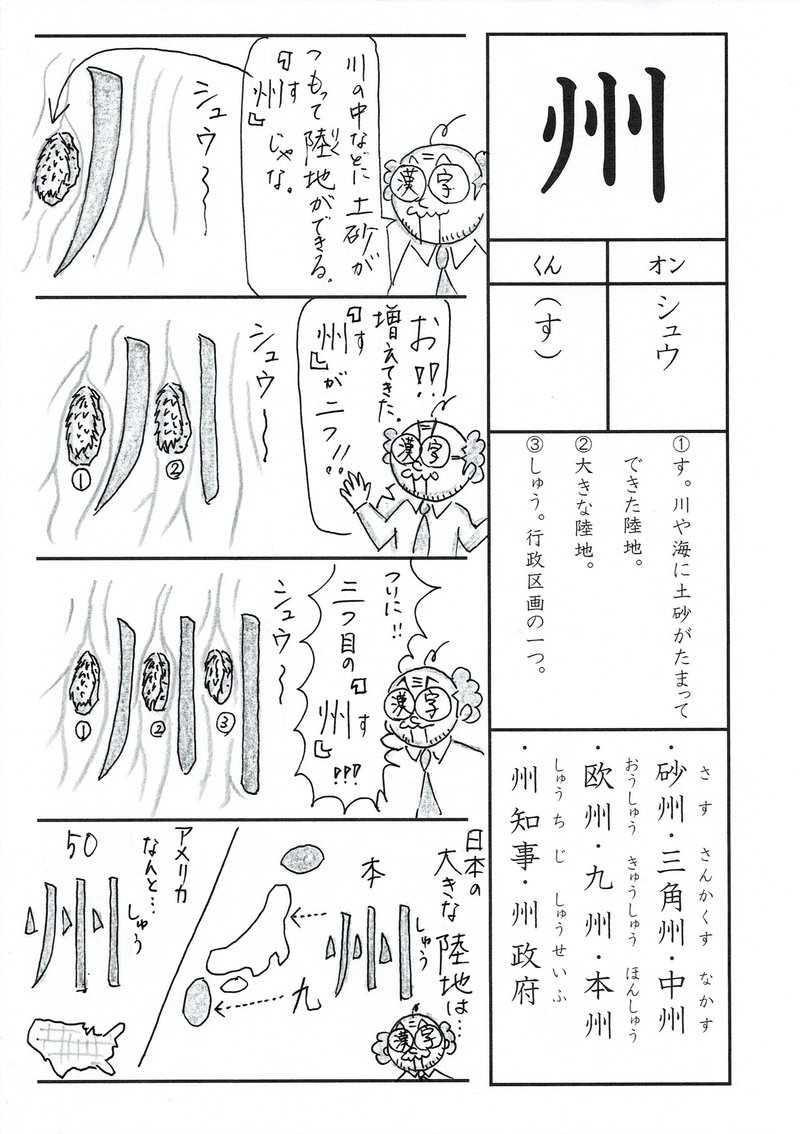 州
オン
くん
シュウ
(す)
①す。川や海に土砂がたまって
できた陸地。
②大きな陸地。
③しゅう。行政区画の一つ。
さす さんかくす なかす
・砂州・三角州・中州
おうしゅう きゅうしゅう ほんしゅう
・欧州・九州・本州
しゅうちじ しゅうせいふ
・州知事・州政府
漢字
川の中などに土砂が
つもって陸地ができる。
りく
『州』じゃな。
す
シュウ〜〜
お!!
増えてきた。
『州』が二つ!!
す
漢字
シュウ〜
②
①
ついに!!
三つ目の
『州』!!!
す
漢字
シュウ〜
③
②
①
日本の
大きな陸地は…
本州
しゅう
九
漢字
アメリカ
なんと…
50州
しゅう